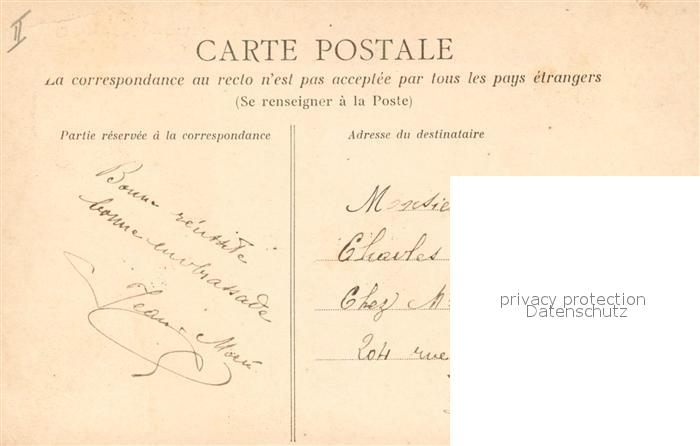 II
CARTE POSTALE
La correspondance au recto n'est pas acceptée par tous les pays étrangers
(Se renseigner à la Poste)
Partie réservée à la correspondance
Adresse du destinataire
Bonne réussite
bonne embrassade
Jean
Monsie
Charles
Chez M
204 rue
privacy protection
Datenschutz